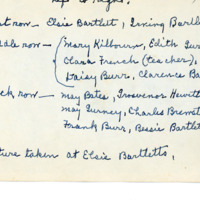 t to right.
nt row — Elsie Bartlett, Irving Bartl
dle row — Mary Kilbourn, Edith Gur
Clara French (teacher),
Daisy Burr, Clarence Ba
ck row — May Bates, Grosvenor Hewitt
May Gurney, Charles Brewst
Frank Burr, Bessie Bartlet
ture taken at Elsie Bartletts.